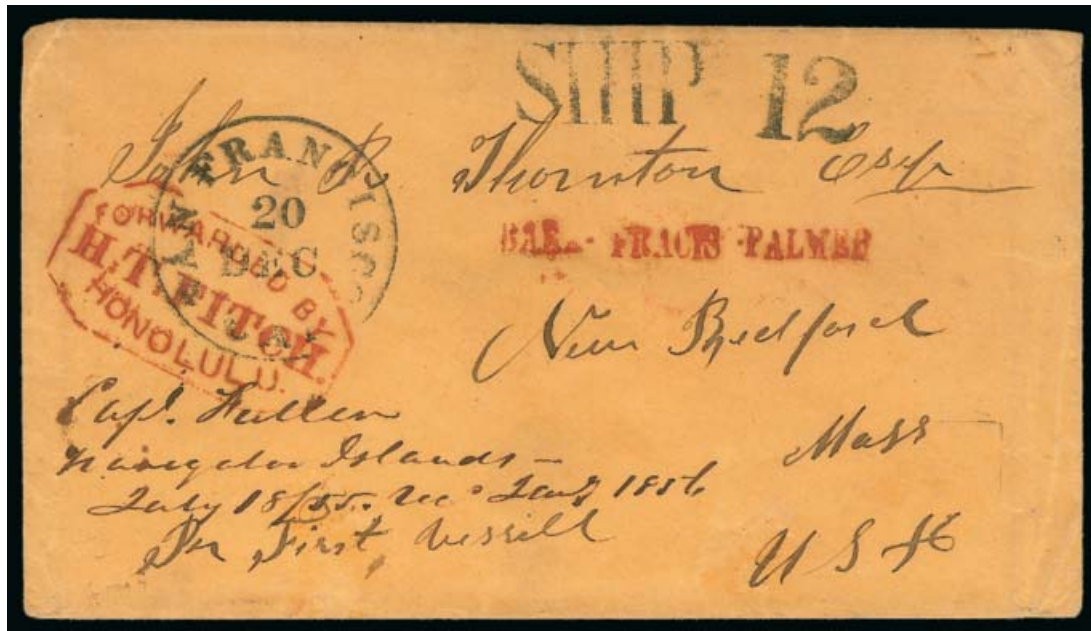 SHIP 12
John R. Thornton Esqr
SAN FRANCISCO
20
DEC
CAL
FORWARDED BY
H.T. FITCH.
HONOLULU.
BARK- FRACIS -PALMER
New Bedford
Mass
U S A
Capt. Fuller
Navigator Islands —
July 18/55. rec Jany 1856
Per First, vessill